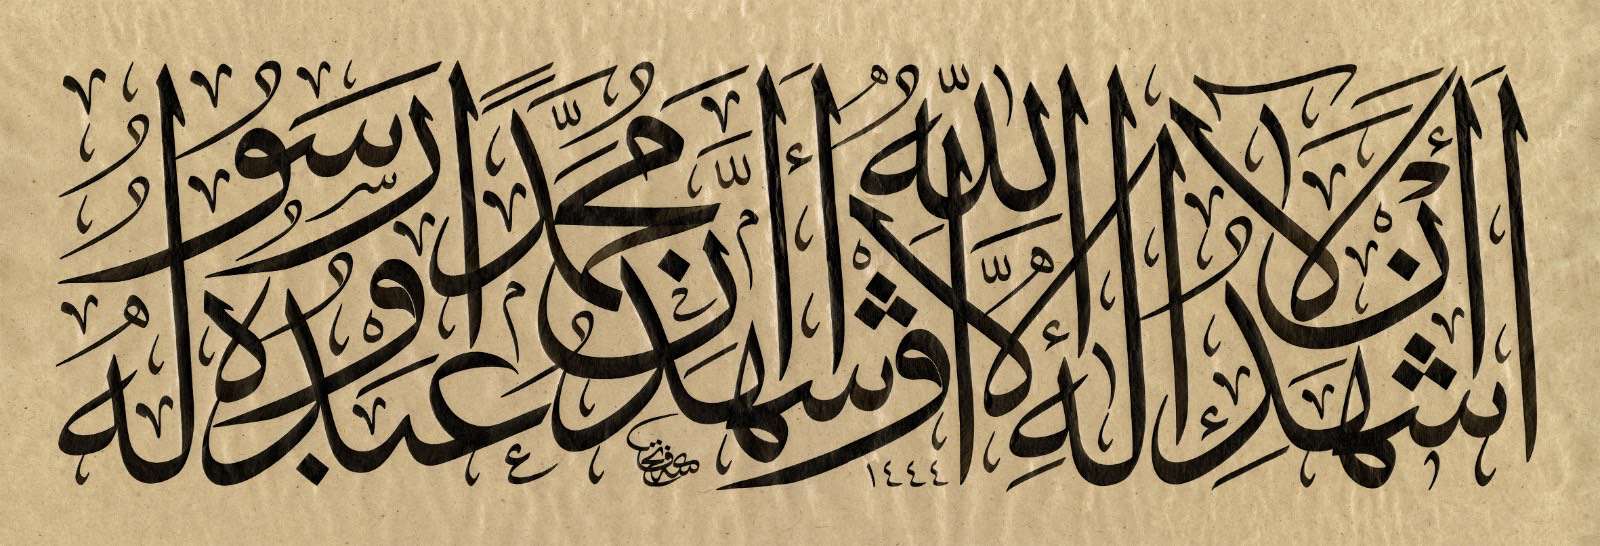 أَشْهَدُ أَنْ لَا إِلٰهَ إِلَّا اللّٰهُ وَأَشْهَدُ أَنَّ مُحَمَّدًا عَبْدُهُ وَرَسُولُهُ
١٤٤٤